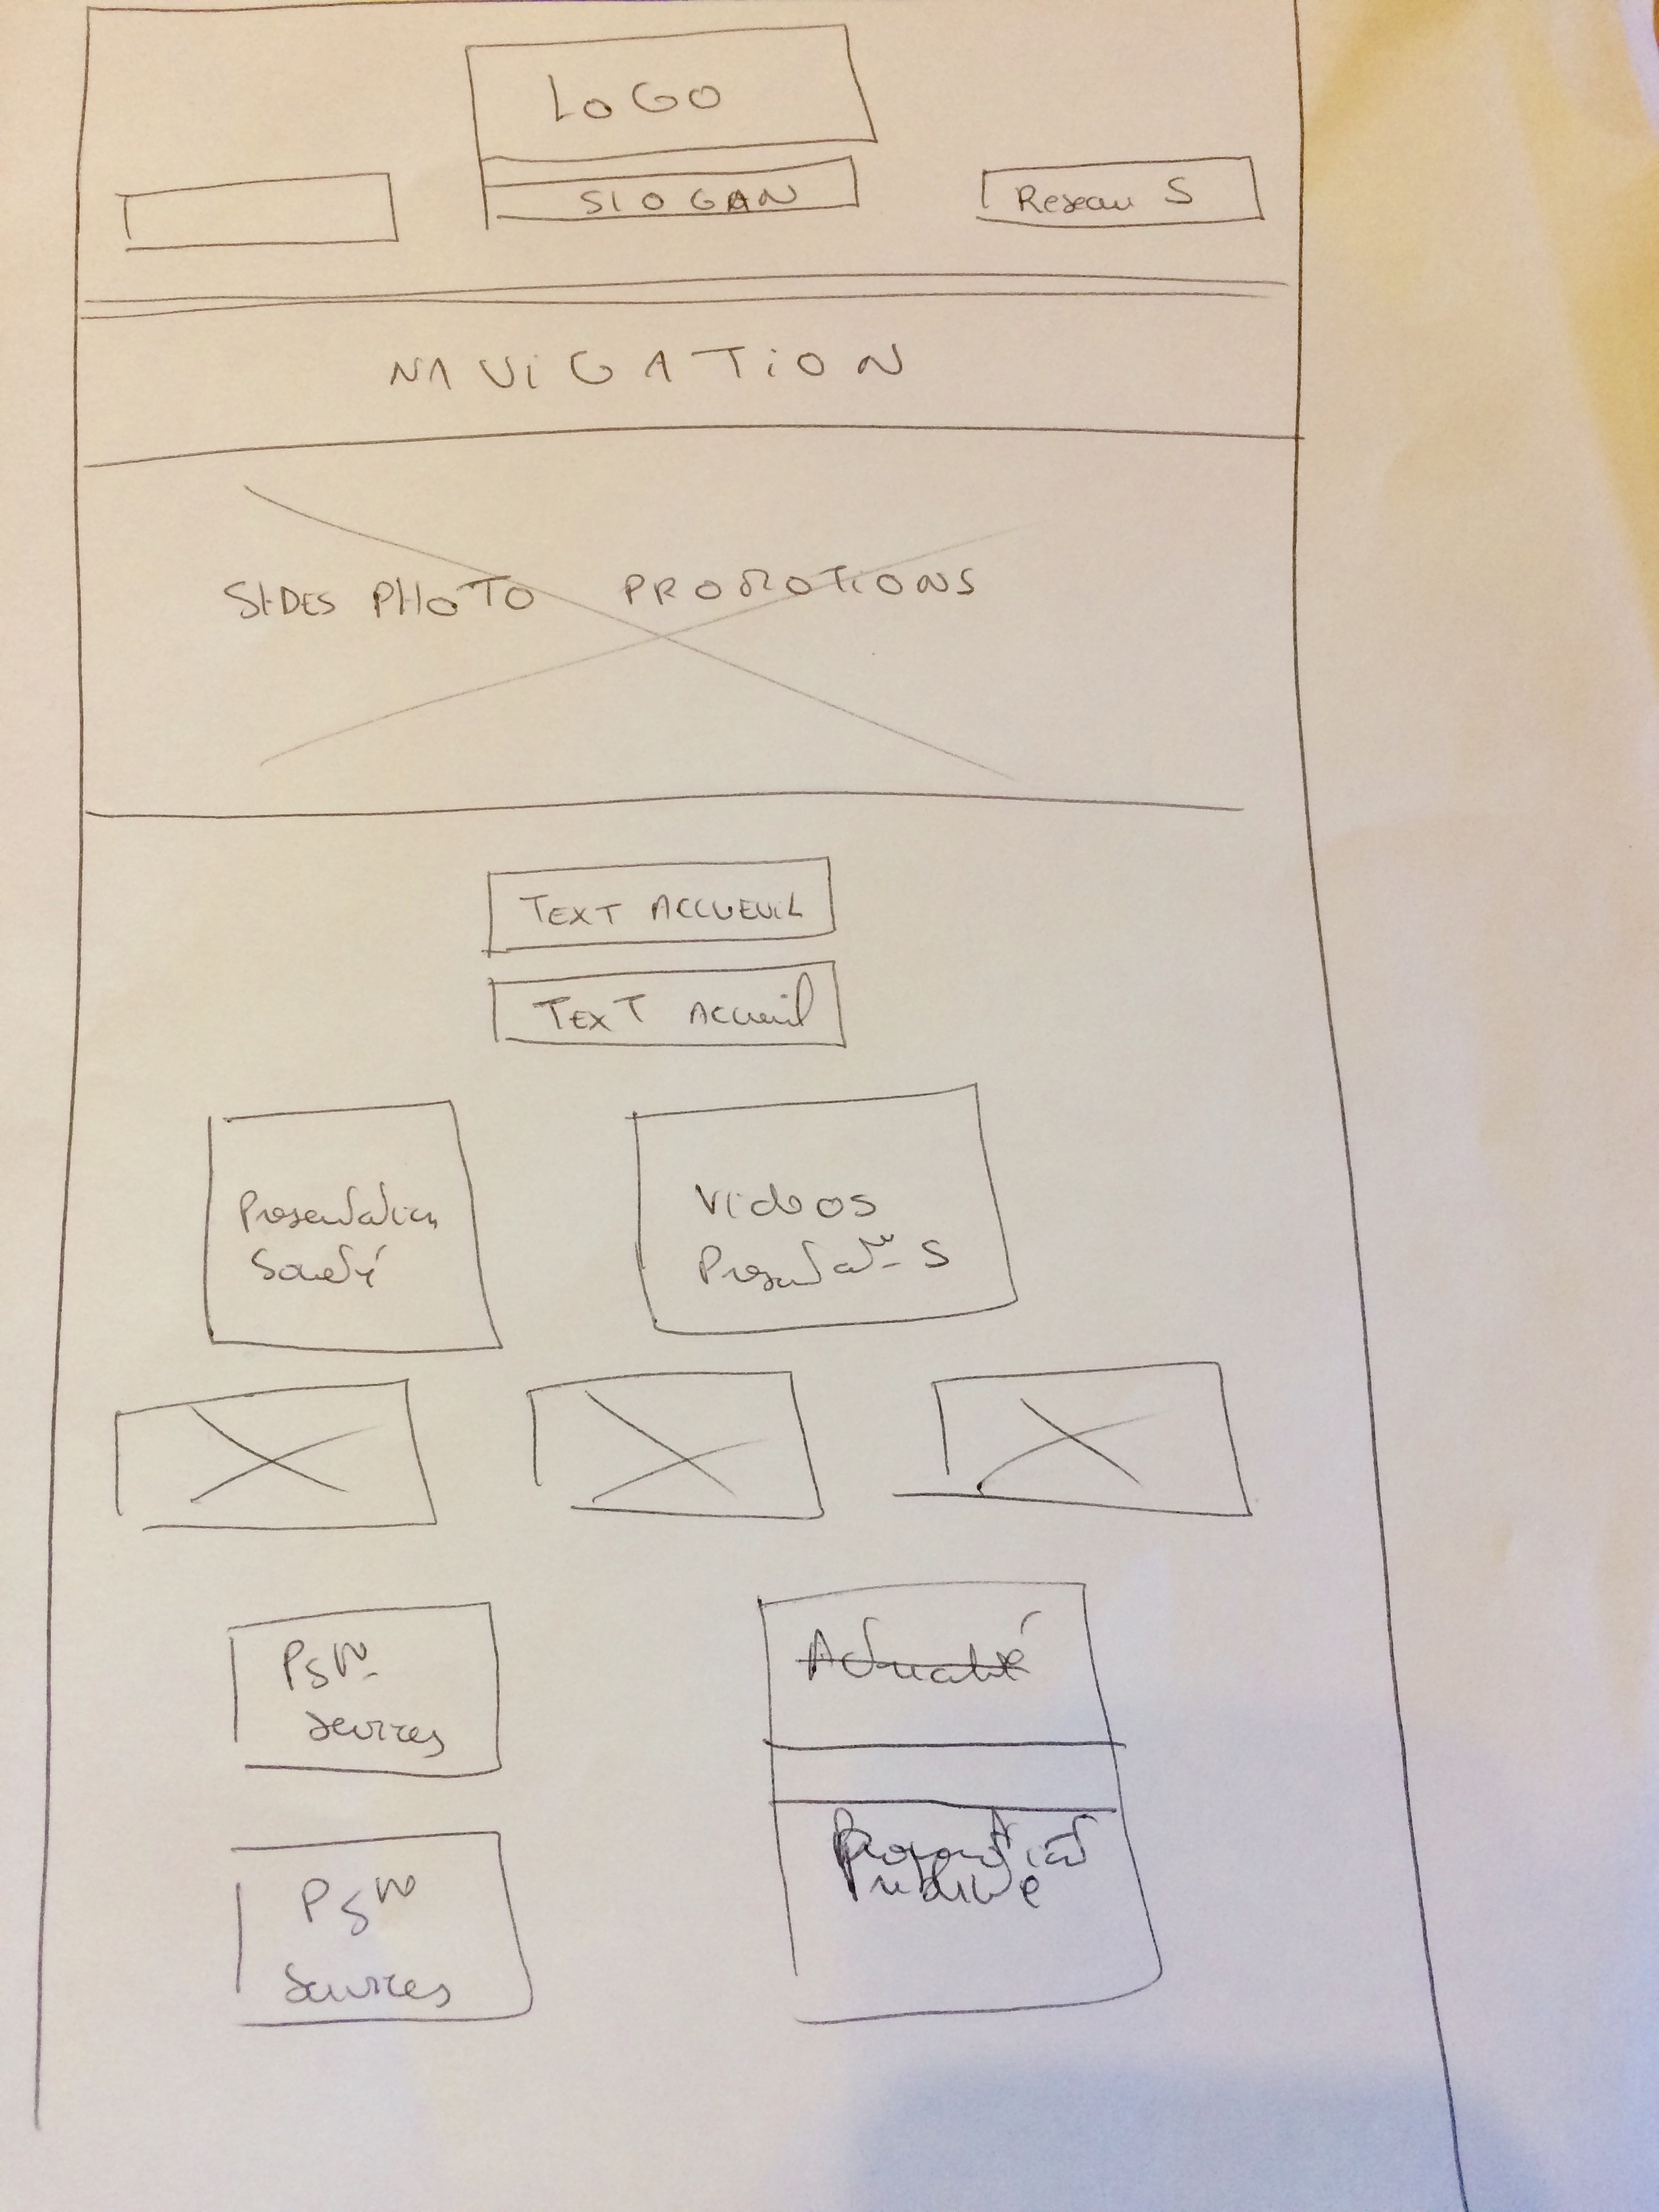 LOGO
SLOGAN
Reseau S
NAVIGATION
SLIDES PHOTO PROMOTIONS
TEXT ACCUEUIL
TEXT Accueil
Presentation
Société
Videos
Presentat° S
PS N
Services
Actualité
PS N
Services